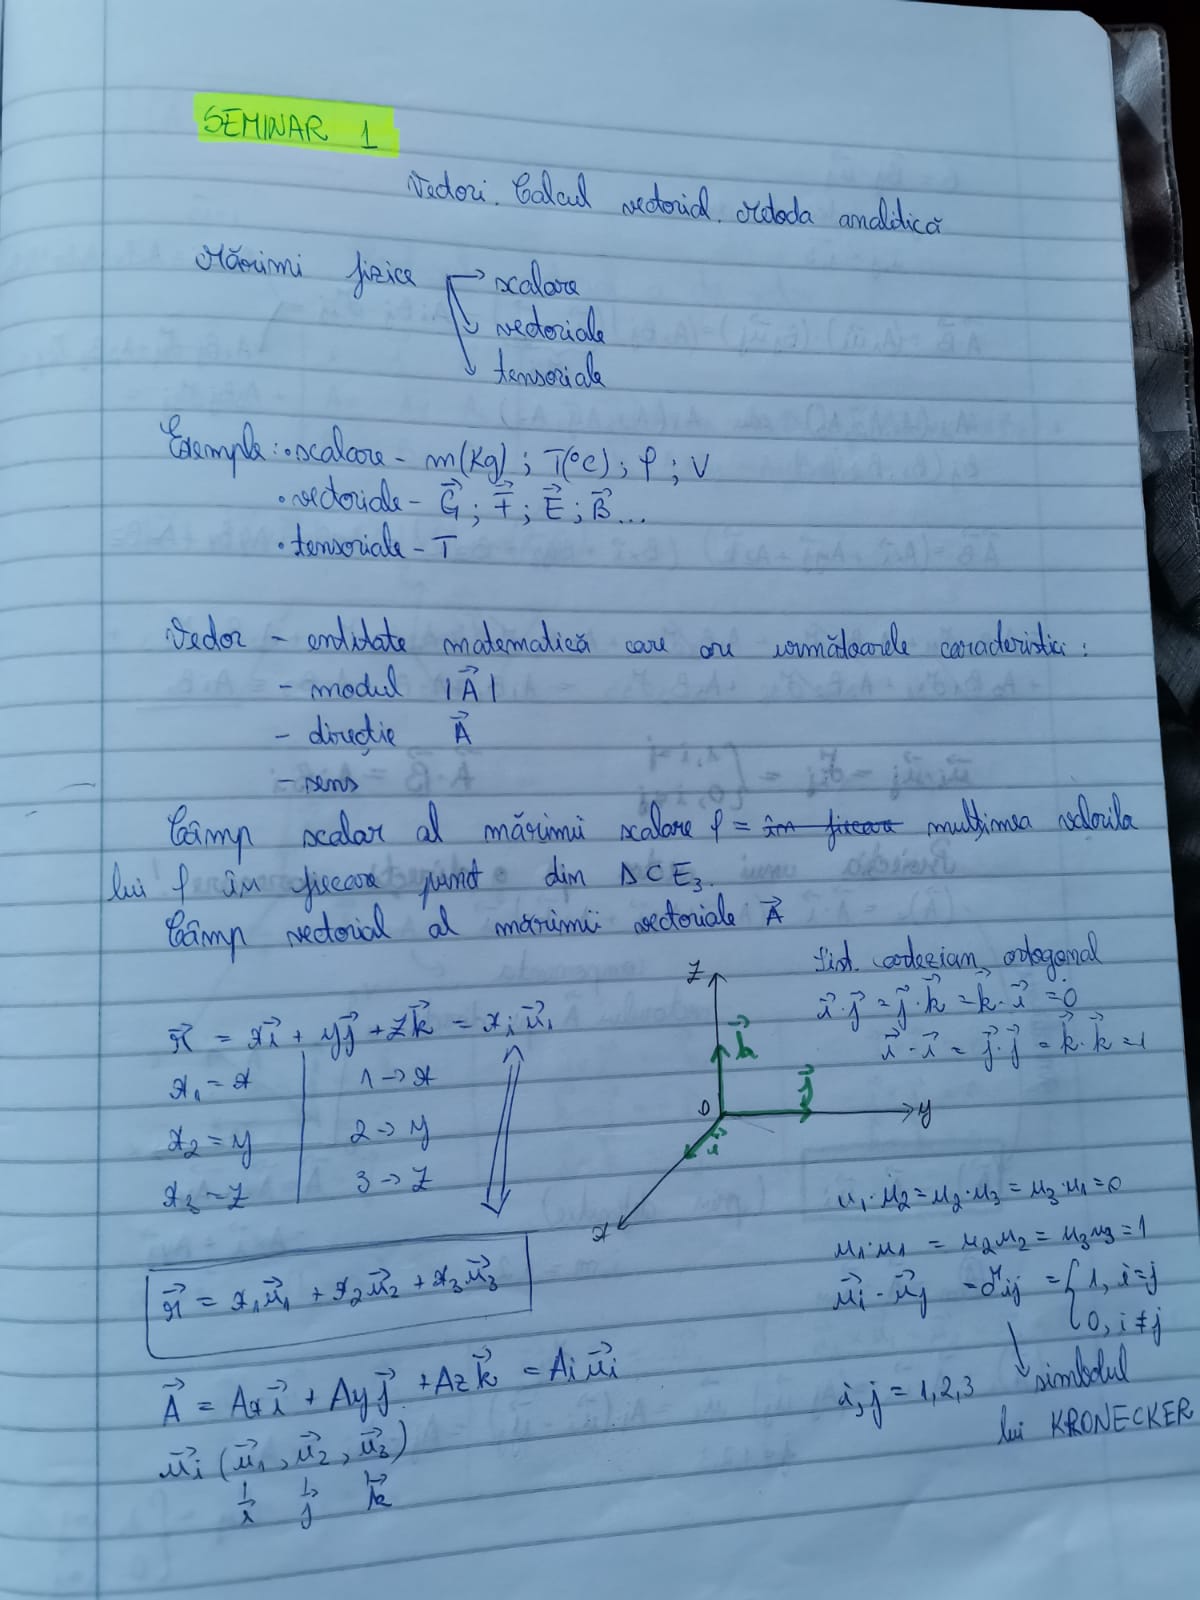 SEMINAR 1
Vectori. Calcul vectorial. Metoda analitică
Mărimi fizice → scalare
→ vectoriale
→ tensoriale
Exemple: • scalare - m(Kg) ; T(°C) ; ρ ; V
• vectoriale - G⃗ ; F⃗ ; E⃗ ; B⃗ ...
• tensoriale - T
Vector - entitate matematică care are următoarele caracteristici :
- modul |A⃗|
- direcție A⃗
- sens
Câmp scalar al mărimii scalare φ = în fiecare mulțimea valorila
lui φ în fiecare punct din D⊂E₃.
Câmp vectorial al mărimii vectoriale A⃗
Sist. cartezian ortogonal
i⃗·j⃗ = j⃗·k⃗ = k⃗·i⃗ = 0
i⃗·i⃗ = j⃗·j⃗ = k⃗·k⃗ = 1
r⃗ = xi⃗ + yj⃗ + zk⃗ = xᵢu⃗ᵢ
x₁ = x | 1 → x
x₂ = y | 2 → y
x₃ = z | 3 → z
z
k⃗
j⃗
O
y
i⃗
x
r⃗ = x₁u⃗₁ + x₂u⃗₂ + x₃u⃗₃
u₁·u₂ = u₂·u₃ = u₃·u₁ = 0
u₁·u₁ = u₂u₂ = u₃u₃ = 1
u⃗ᵢ·u⃗ⱼ = δij = { 1, i=j
0, i≠j
i, j = 1,2,3
simbolul
lui KRONECKER
A⃗ = Axi⃗ + Ayj⃗ + Azk⃗ = Aᵢu⃗ᵢ
u⃗ᵢ (u⃗₁, u⃗₂, u⃗₃)
i⃗ j⃗ k⃗